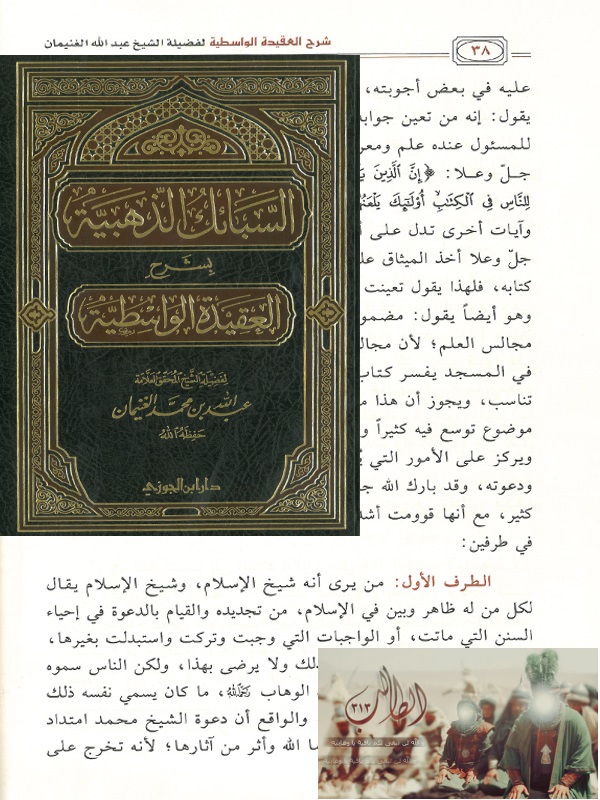 ٣٨
شرح العقيدة الواسطية لفضيلة الشيخ عبد الله الغنيمان
عليه في بعض أجوبته،
يقول: إنه من تعين جوابه
للمسئول عنده علم ومعر
جلّ وعلا: ﴿إِنَّ ٱلَّذِينَ
لِلنَّاسِ فِي ٱلْكِتَٰبِ أُوْلَٰٓئِكَ
وآيات أخرى تدل على
جلّ وعلا أخذ الميثاق
كتابه، فلهذا يقول تعينت
وهو أيضاً يقول: مضمو
مجالس العلم؛ لأن مجال
في المسجد يفسر كتاب
تناسب، ويجوز أن هذا
موضوع توسع فيه كثيراً و
ويركز على الأمور التي
ودعوته، وقد بارك الله
كثير، مع أنها قوومت أشد
في طرفين:
السبائك الذهبية
بشرح
العقيدة الواسطية
لفضيلة الشيخ المحقق العلامة
عبد الله بن محمد الغنيمان
حفظه الله
دار ابن الجوزي
الطرف الأول: من يرى أنه شيخ الإسلام، وشيخ الإسلام يقال
لكل من له ظاهر وبين في الإسلام، من تجديده والقيام بالدعوة في إحياء
السنن التي ماتت، أو الواجبات التي وجبت وتركت واستبدلت بغيرها،
ذلك ولا يرضى بهذا، ولكن الناس سموه
الوهاب رحمه الله، ما كان يسمي نفسه ذلك
والواقع أن دعوة الشيخ محمد امتداد
الله وأثر من آثارها؛ لأنه تخرج على
الطالب
٣١٣